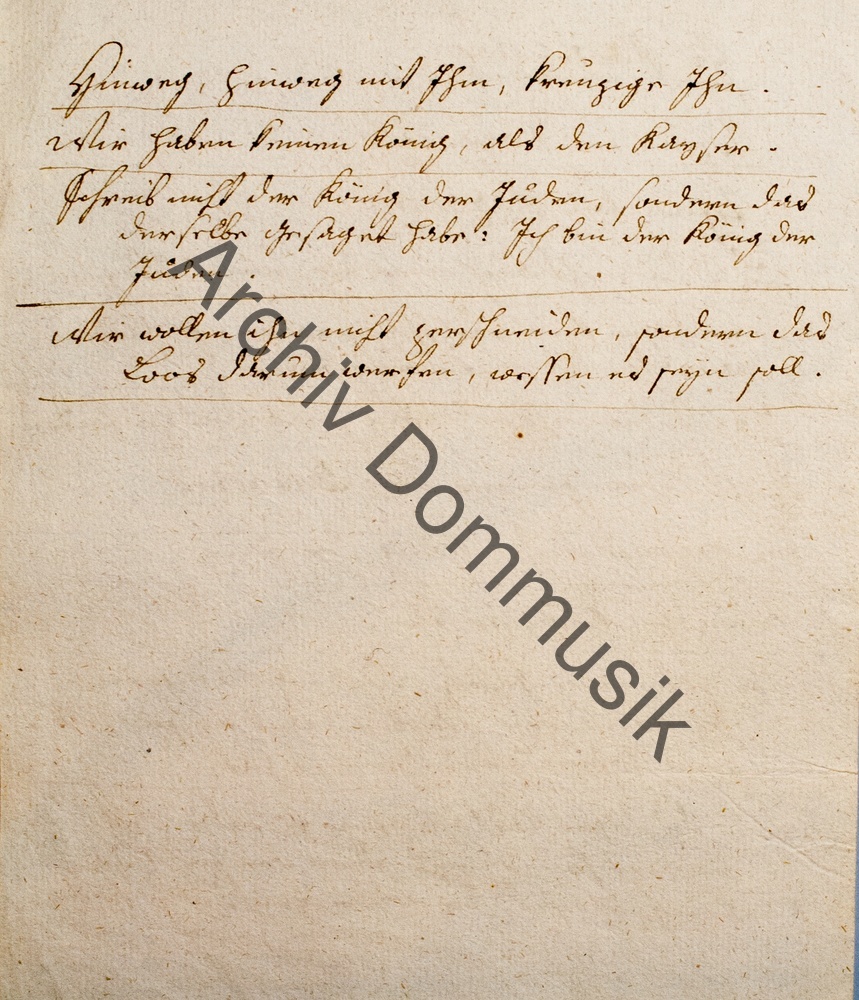 Hinweg, hinweg mit Ihm, kreuzige Ihn.
Wir haben keinen König, als den Kayser.
Schreib nicht der König der Juden, sondern das
derselbe gesaget habe: Ich bin der König der
Juden.
Wir wollen ihn nicht zerschneiden, sondern das
Loos darum werfen, wessen es seyn soll.
Archiv Dommusik